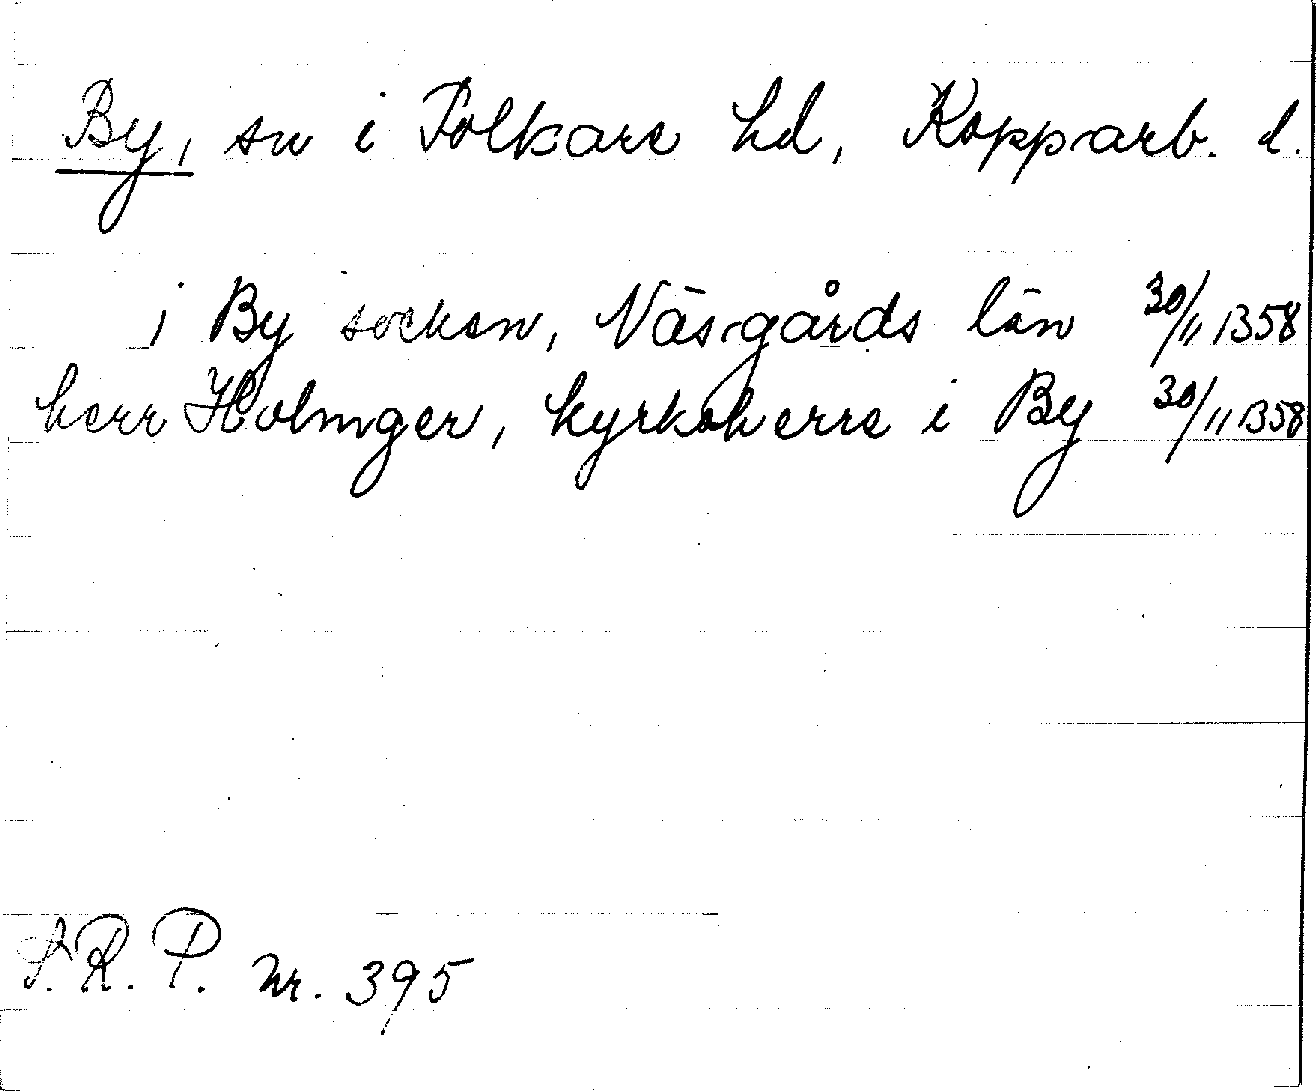 By, sn i Folkare hd, Kopparb. l.
i By socken, Näsgårds län 30/11 1358
herr Holmger, kyrkoherre i By 30/11 1358
S.R.P. nr. 395